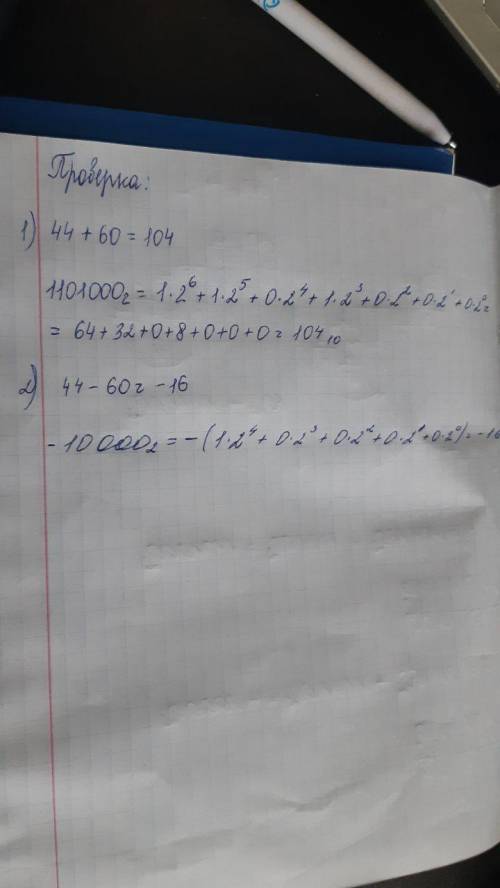 Проверка:
1) 44 + 60 = 104
1101000₂ = 1·2⁶ + 1·2⁵ + 0·2⁴ + 1·2³ + 0·2² + 0·2¹ + 0·2⁰ =
= 64 + 32 + 0 + 8 + 0 + 0 + 0 = 104₁₀
2) 44 - 60 = -16
- 10000₂ = - (1·2⁴ + 0·2³ + 0·2² + 0·2¹ + 0·2⁰) = -16